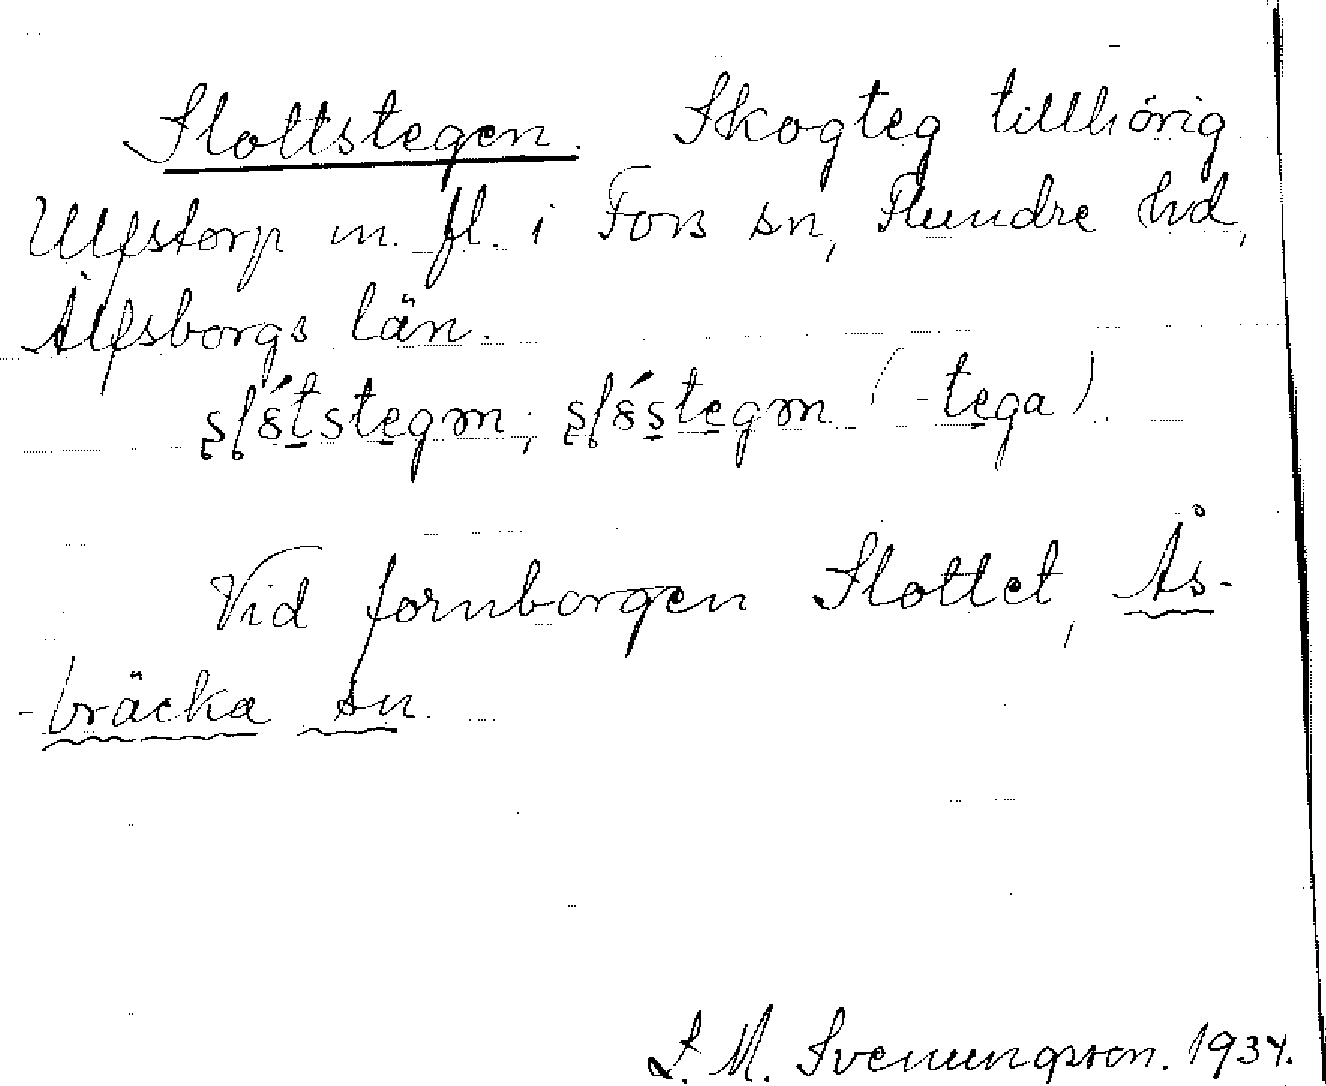 Slottstegen. Skogteg tillhörig
Ulfstorp m. fl. i Fors sn, Flundre hd,
Älfsborgs län.
(-tega).
Vid fornborgen Slottet, Ås-
-bräcka sn.
S. M. Svenungsson. 1934.